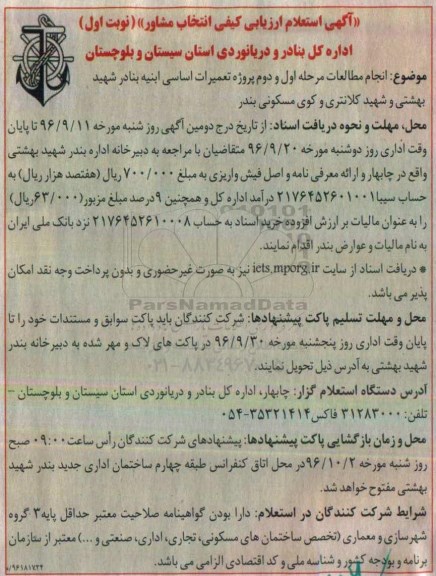 «آگهی استعلام ارزیابی کیفی انتخاب مشاور» (نوبت اول)
اداره کل بنادر و دریانوردی استان سیستان و بلوچستان
موضوع: انجام مطالعات مرحله اول و دوم پروژه تعمیرات اساسی ابنیه بنادر شهید
بهشتی و شهید کلانتری و کوی مسکونی بندر
محل، مهلت و نحوه دریافت اسناد: از تاریخ درج دومین آگهی روز شنبه مورخه ۹۶/۹/۱۱ تا پایان
وقت اداری روز دوشنبه مورخه ۹۶/۹/۲۰ متقاضیان با مراجعه به دبیرخانه اداره بندر شهید بهشتی
واقع در چابهار و ارائه معرفی نامه و اصل فیش واریزی به مبلغ ۷۰۰/۰۰۰ ریال (هفتصد هزار ریال) به
حساب سیبا ۲۱۷۶۴۵۲۶۰۱۰۰۱ درآمد اداره کل و همچنین ۹درصد مبلغ مزبور(۶۳/۰۰۰ریال)
را به عنوان مالیات بر ارزش افزوده خرید اسناد به حساب ۲۱۷۶۴۵۲۶۱۰۰۰۸ نزد بانک ملی ایران
به نام مالیات و عوارض بندر اقدام نمایند.
• دریافت اسناد از سایت iets.mporg.ir نیز به صورت غیرحضوری و بدون پرداخت وجه نقد امکان
پذیر می باشد.
ParsNamadData
محل و مهلت تسلیم پاکت پیشنهادها: شرکت کنندگان باید پاکت سوابق و مستندات خود را تا
پایان وقت اداری روز پنجشنبه مورخه ۹۶/۹/۳۰ در پاکت های لاک و مهر شده به دبیرخانه بندر
شهید بهشتی به آدرس ذیل تحویل نمایند.
آدرس دستگاه استعلام گزار: چابهار، اداره کل بنادر و دریانوردی استان سیستان و بلوچستان -
تلفن: ۳۱۲۸۳۰۰۰ فاکس۳۵۳۲۱۴۱۴-۰۵۴
محل و زمان بازگشایی پاکت پیشنهادها: پیشنهادهای شرکت کنندگان رأس ساعت۰۹:۰۰ صبح
روز شنبه مورخه ۹۶/۱۰/۲در محل اتاق کنفرانس طبقه چهارم ساختمان اداری جدید بندر شهید
بهشتی مفتوح خواهد شد.
شرایط شرکت کنندگان در استعلام: دارا بودن گواهینامه صلاحیت معتبر حداقل پایه۳ گروه
شهرسازی و معماری (تخصص ساختمان های مسکونی، تجاری، اداری، صنعتی و ...) معتبر از سازمان
برنامه و بودجه کشور و شناسه ملی و کد اقتصادی الزامی می باشد.